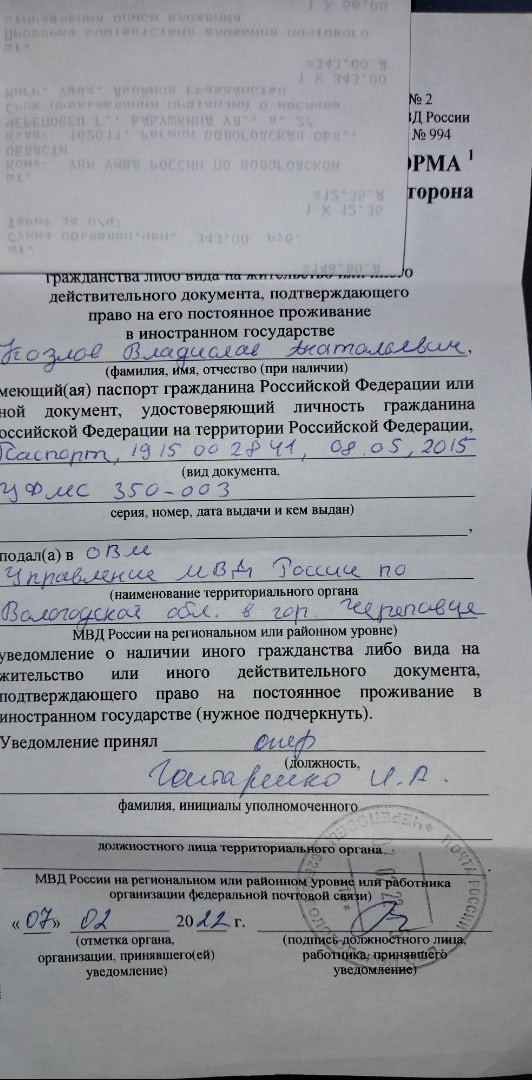 1 Х 88.00
≡343.00
1 Х 343.00
≡15.36
1 Х 15.36
343.00
№ 2
ВД России
№ 994
ОРМА 1
торона
гражданства либо вида на жительство или иного
действительного документа, подтверждающего
право на его постоянное проживание
в иностранном государстве
Козлов Владислав Анатольевич,
(фамилия, имя, отчество (при наличии)
меющий(ая) паспорт гражданина Российской Федерации или
ной документ, удостоверяющий личность гражданина
оссийской Федерации на территории Российской Федерации,
Паспорт, 1915 002841, 08.05, 2015
(вид документа,
УФМС 350-003
серия, номер, дата выдачи и кем выдан)
,
подал(а) в ОВМ
Управление МВД России по
(наименование территориального органа
Вологодской обл. в гор. Череповце
МВД России на региональном или районном уровне)
уведомление о наличии иного гражданства либо вида на
жительство или иного действительного документа,
подтверждающего право на постоянное проживание в
иностранном государстве (нужное подчеркнуть).
Уведомление принял опер
(должность,
И.А.
фамилия, инициалы уполномоченного
должностного лица территориального органа
МВД России на региональном или районном уровне или работника
организации федеральной почтовой связи)
« 07 » 02 2022 г.
(отметка органа, (подпись должностного лица,
организации, принявшего(ей) работника, принявшего
уведомление) уведомление)
ПОЧТА РОССИИ
ЧЕРЕПОВЕЦ